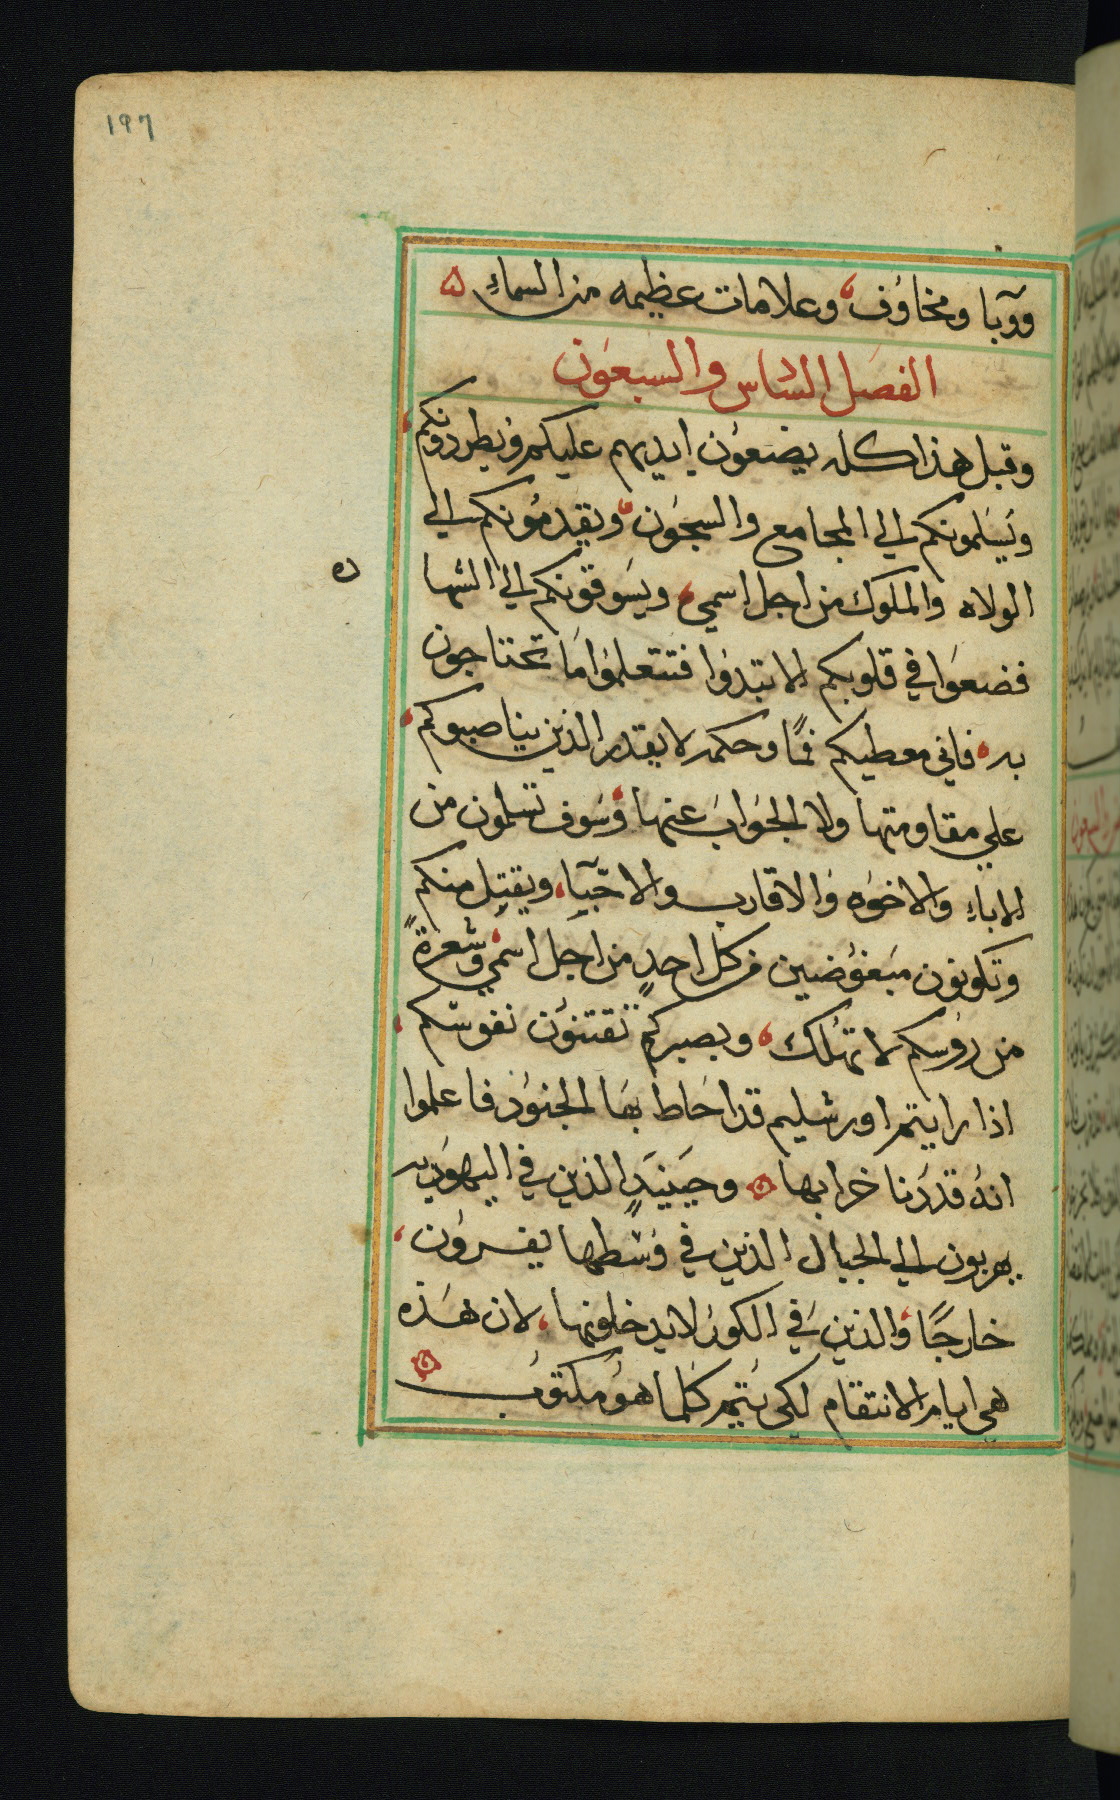 ١٩٦
ووبا ومخاوف وعلامات عظيمه من السماء ۵
الفصل السادس والسبعون
وقبل هذا كله يضعون ايديهم عليكم ويطردونكم
ويسلمونكم الي المجامع والسجون ويقدمونكم الي
الولاه والملوك من اجل اسمي ويسوقونكم الي الشها
ده
فضعوا في قلوبكم الا تبدوا فتتعلموا ما تحتاجون
به فاني معطيكم فمًا وحكمه لا يقدر الذين يناصبوكم
علي مقاومتها ولا الجواب عنها وسوف تسلمون من
الاباء والاخوه والاقارب والاحبآيا ويقتل منكم
وتكونون مبغوضين من كل احدٍ من اجل اسمي وشعرةً
من رؤسكم لا تهلك وبصبركم تقتنون نفوسكم
اذا رايتم اورشليم قد احاط بها الجنود فاعلموا
انه قد دنا خرابها وحينيدٍ الذين في اليهوديه
يهربون الي الجبال الذين في وسطها يفرون
خارجًا والذين في الكور لا يدخلونها لان هذه
هي ايام الانتقام لكي يتم كلما هو مكتوب